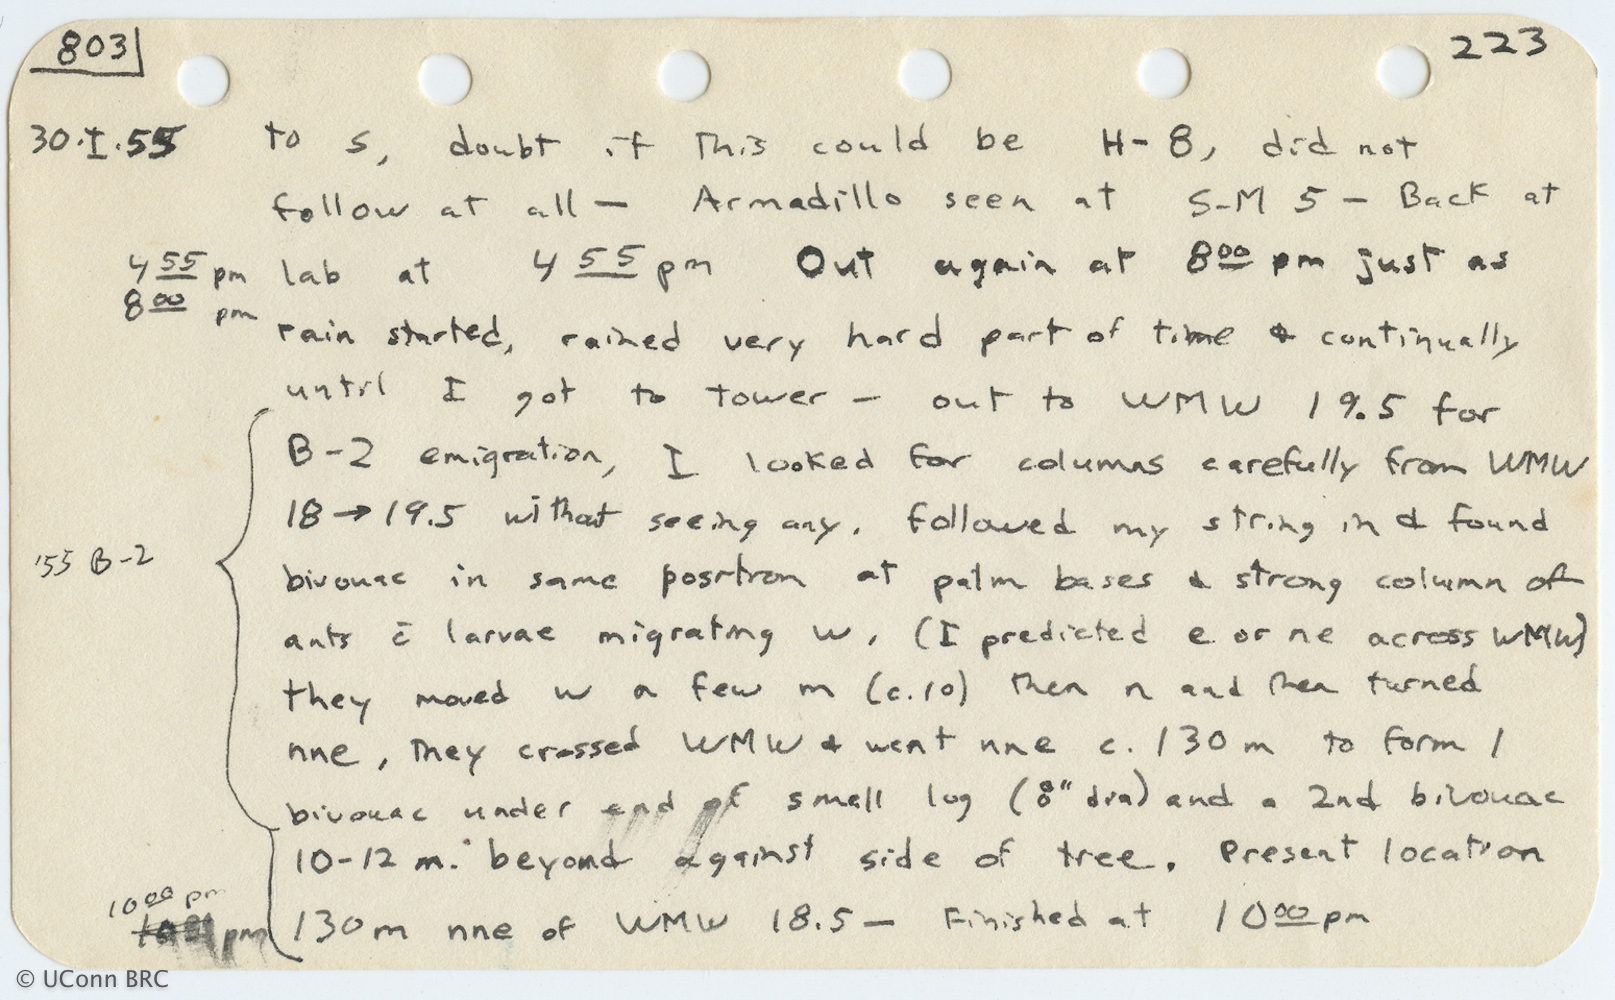 803
223
30.I.55 to s, doubt if this could be H-8, did not
follow at all — Armadillo seen at S-M 5 — Back at
4 55 pm lab at 4 55 pm Out again at 8 00 pm just as
8 00 pm
rain started, rained very hard part of time & continually
until I got to tower — out to WMW 19.5 for
B-2 emigration, I looked for columns carefully from WMW
18 → 19.5 without seeing any. Followed my string in & found
'55 B-2
bivouac in same position at palm bases & strong column of
ants c̄ larvae migrating w. (I predicted e or ne across WMW)
they moved w a few m (c.10) then n and then turned
nne, they crossed WMW & went nne c. 130 m to form 1
bivouac under end of small log (8" dia) and a 2nd bivouac
10-12 m. beyond against side of tree. Present location
10 00 pm
pm 130 m nne of WMW 18.5 — Finished at 10 00 pm
© UConn BRC